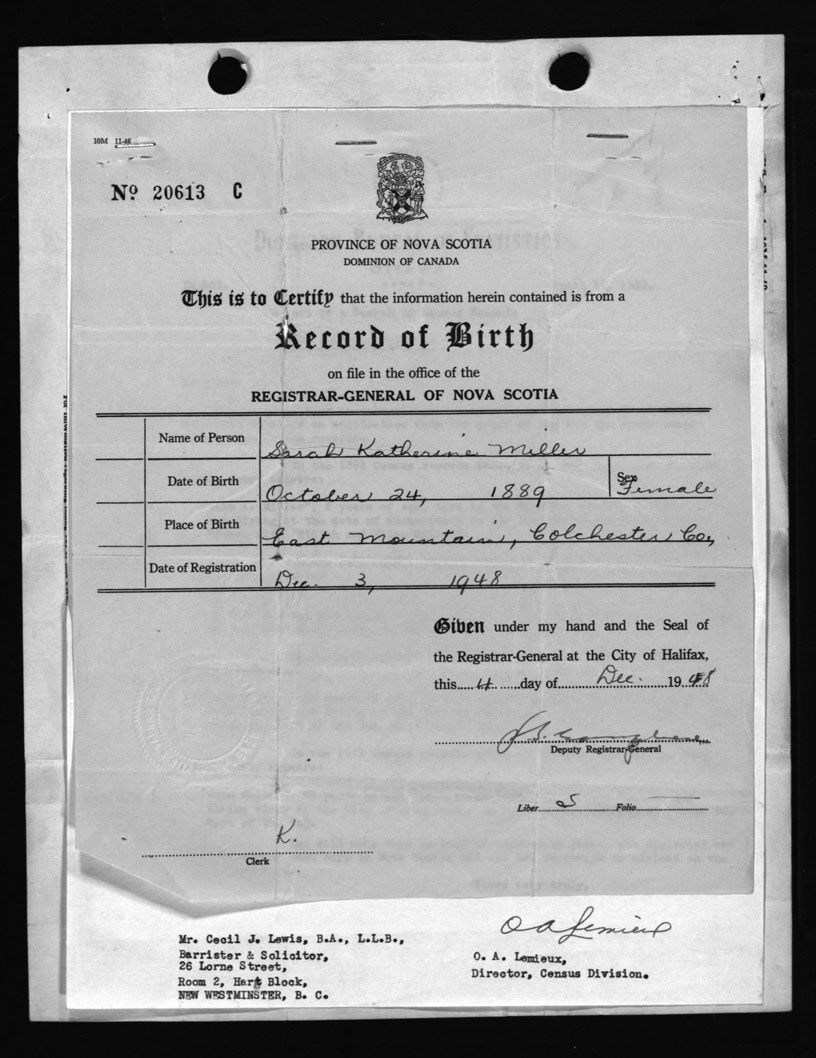 10M 11-46
Nº 20613 C
PROVINCE OF NOVA SCOTIA
DOMINION OF CANADA
This is to Certify that the information herein contained is from a
Record of Birth
on file in the office of the
REGISTRAR-GENERAL OF NOVA SCOTIA
Name of Person Sarah Katherine Miller
Date of Birth October 24, 1889 Sex Female
Place of Birth East Mountain, Colchester Co.,
Date of Registration Dec. 3, 1948
Given under my hand and the Seal of
the Registrar-General at the City of Halifax,
this.....4.......day of..............Dec...........19..48
Deputy Registrar-General
Liber S Folio
K.
Clerk
O A Lemieux
Mr. Cecil J. Lewis, B.A., L.L.B.,
Barrister & Solicitor,
26 Lorne Street,
Room 2, Hart Block,
NEW WESTMINSTER, B. C.
O. A. Lemieux,
Director, Census Division.